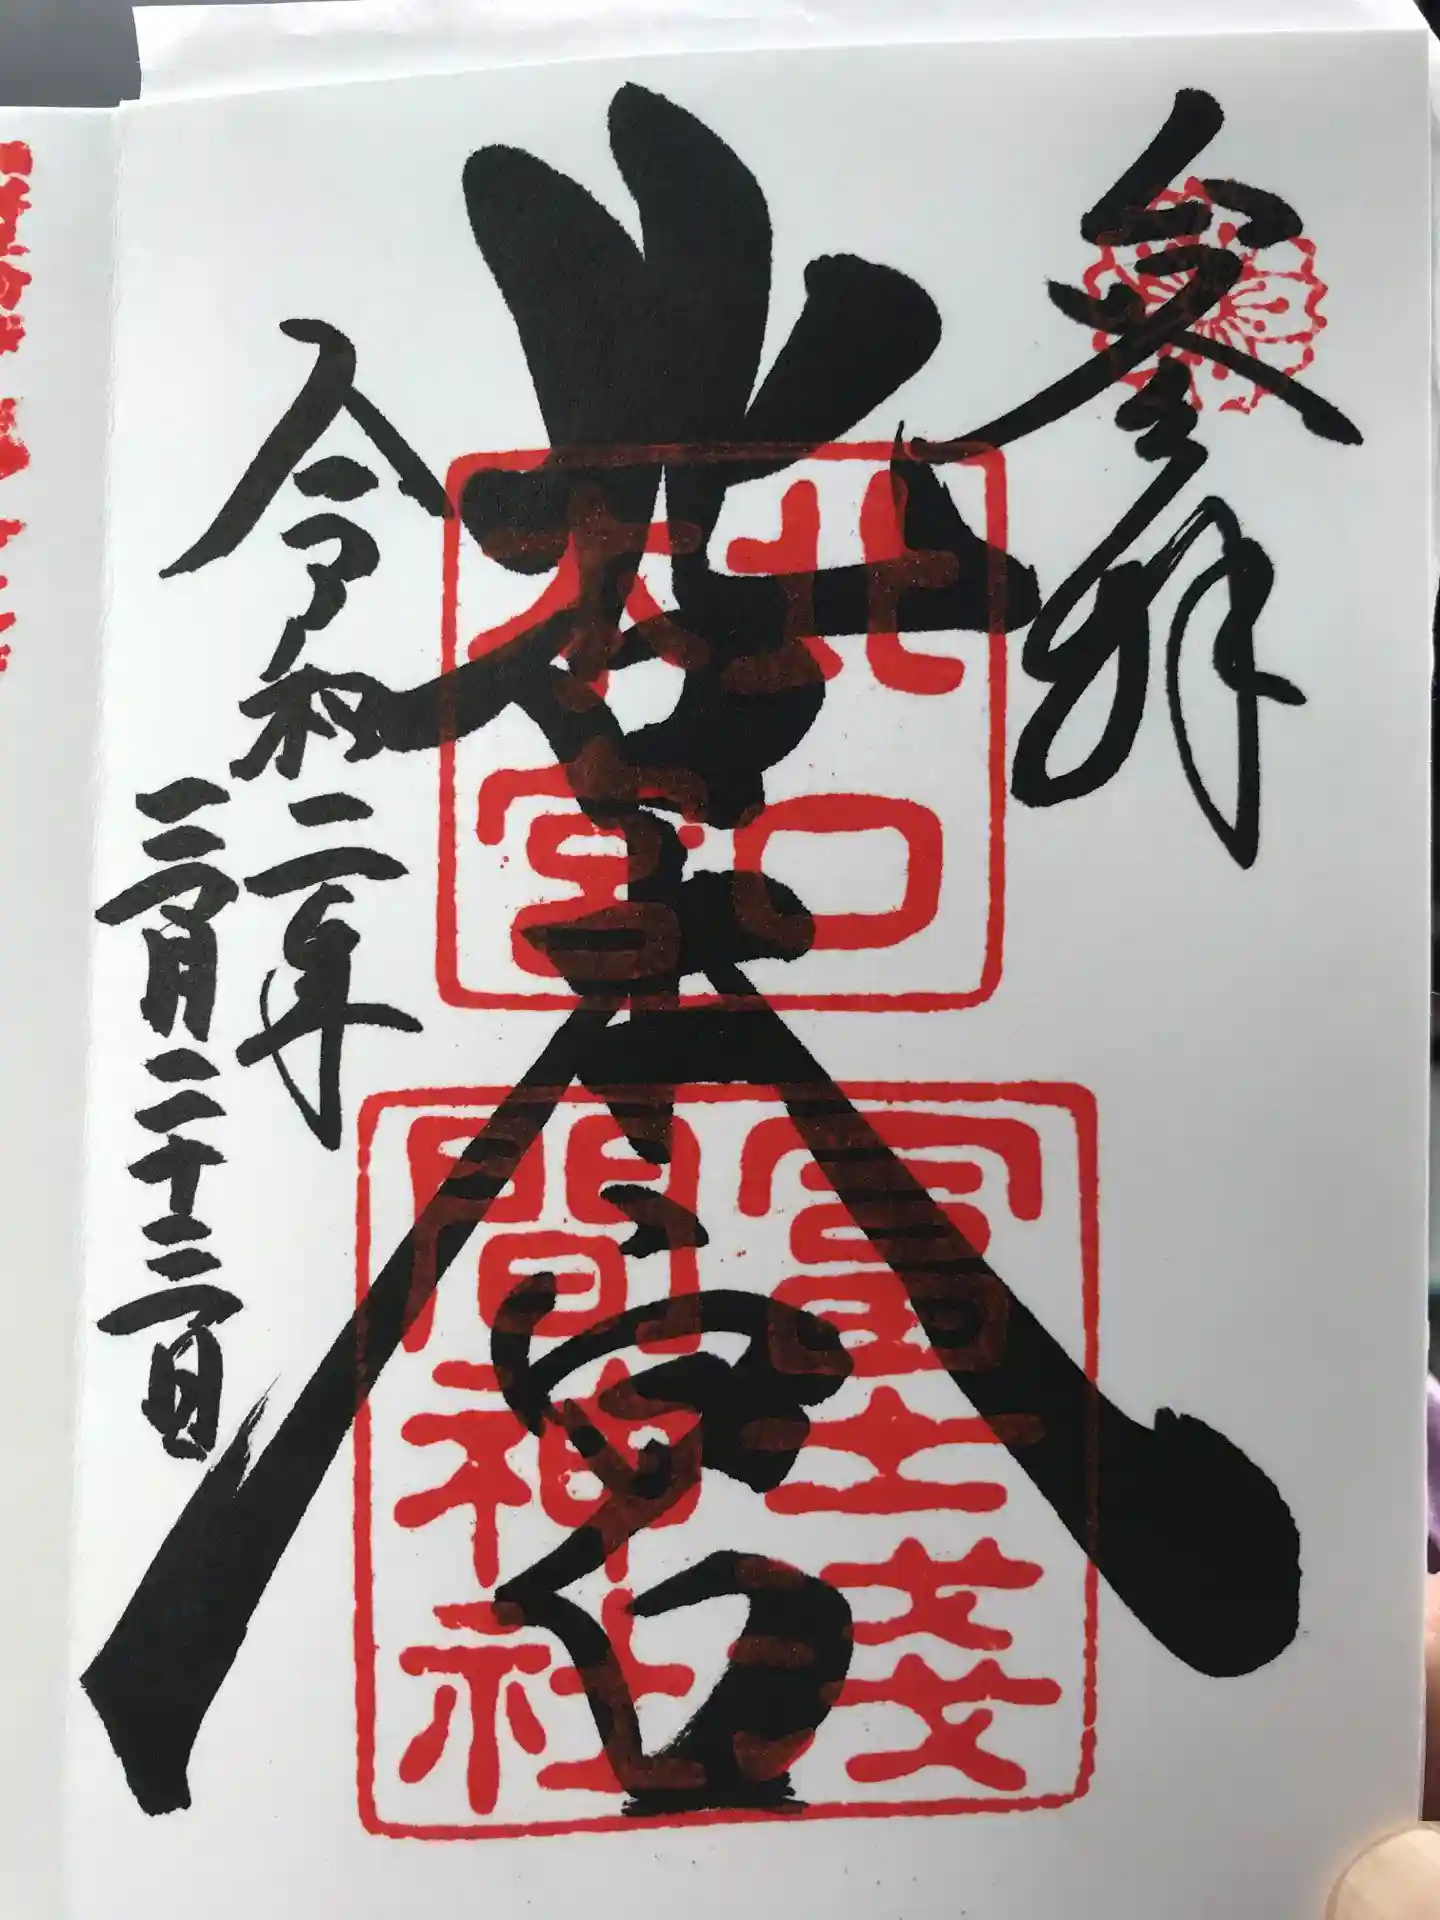 参拝
北口本宮
令和二年
三月二十三日
北口
本宮
冨士戔
間神社